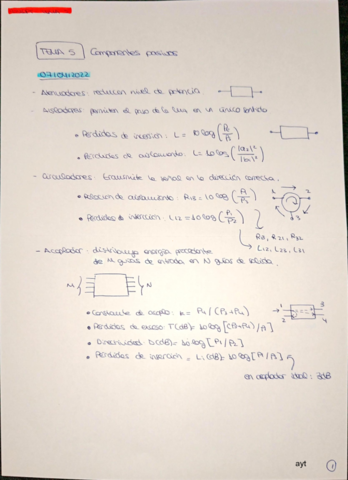 TEMA 5 Componentes pasivos
07/04/2022
- Atenuadores: reducen nivel de potencia
- Aisladores: permiten el paso de la luz en un único sentido
• Pérdidas de inserción: L = 10 log
• Pérdidas de aislamiento: L = 10 log
- Circuladores: transmite la señal en la dirección correcta.
• Relación de aislamiento: R13 = 10 log (P1/P3)
• Pérdidas de inserción: L12 = 10 log (P1/P2)
1 2
3
L12, L23, L31
- Acoplador: distribuye energía procedente
de M guías de entrada en N guías de salida.
M N
• Constante de acoplo: k = P4 / (P3+P4)
• Pérdidas de exceso: T(dB) = 10 log [(P3+P4)/P1]
• Directividad: D(dB) = 10 log [P1/P2]
• Pérdidas de inserción = Li(dB) = 10 log [P1/P3]
1 3
2 4
en acoplador ideal: 3dB
ayt
1